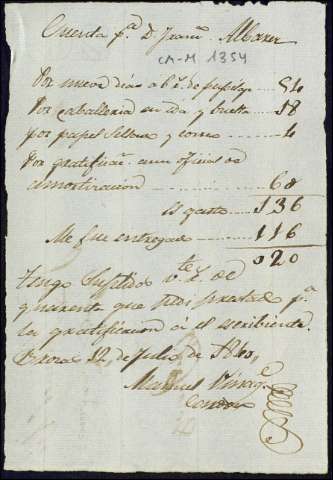 Cuenta p.a D. Juan Albarez
CA-M 1354
Por nueve dias a 6 r.s de ........ 54
Por caballeria en ida y buelta .... 18
por papel Sellado y correo ...... 4
Por gratificac.n a un oficial de
amortizacion ............ 60
es gasto .... 136
Me fue entregado ....... 116
020
Tengo Suplido v.te r.s de
quarenta que pedi prestad p.a
la gratificacion á el escribiente.
12 de Julio de 1840,
Manuel